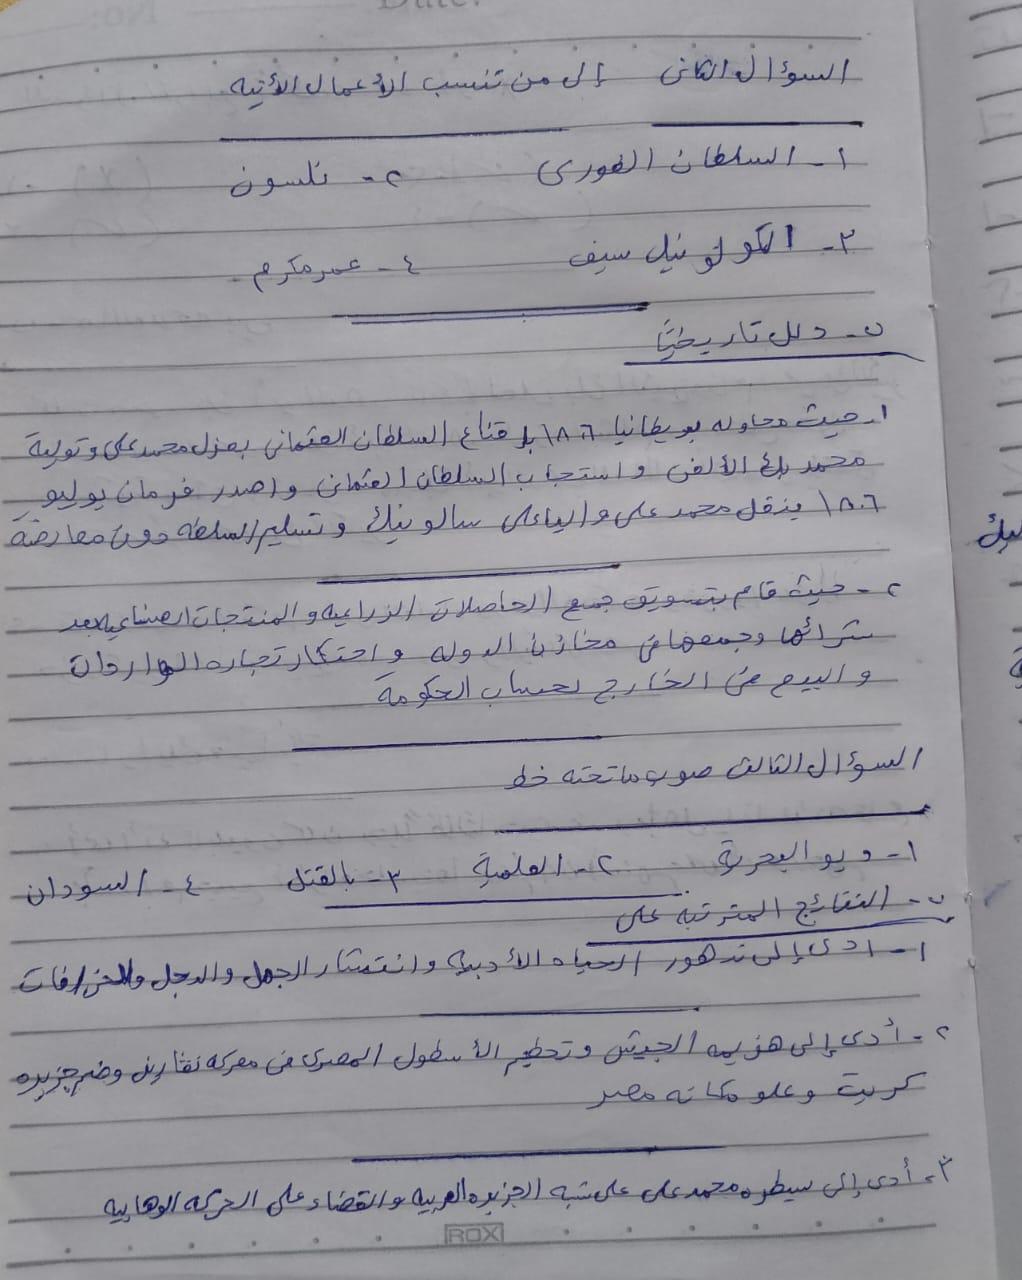 السؤال الثانى إلى من تنسب الأعمال الأتيه
١- السلطان الغورى ٢- نلسون
٣- الكولونيل سيف ٤- عمر مكرم.
ب- دلل تاريخيًا
١- حيث محاوله بريطانيا ١٨٠٦ بإقناع السلطان العثمانى بعزل محمد على وتولية
محمد بك الألفى واستجاب السلطان العثمانى واصدر فرمان يوليو
١٨٠٦ بنقل محمد على واليا على سالونيك وتسليم السلطه دون معارضة
٢- حيث قام بتسويق جميع الحاصلات الزراعيه والمنتجات الصناعيه بعد
شرائها وجمعها فى مخازن الدوله واحتكار تجاره الواردات
والبيع فى الخارج لحساب الحكومة
السؤال الثالث صوب ماتحته خط
١- ديو البحرية ٢- العلمية ٣- بالقتل ٤- السودان
ب- النتائج المترتبه على
١- ادى إلى تدهور الحياه الأدبيه وانتشار الجهل والدجل والخرافات
٢- أدى إلى هزيمه الجيش وتحطيم الأسطول المصرى فى معركه نفارين وضم جزيره
كريت وعلو مكانه مصر
٣- أدى إلى سيطره محمد على على شبه الجزيره العربيه والقضاء على الحركه الوهابيه
ROX